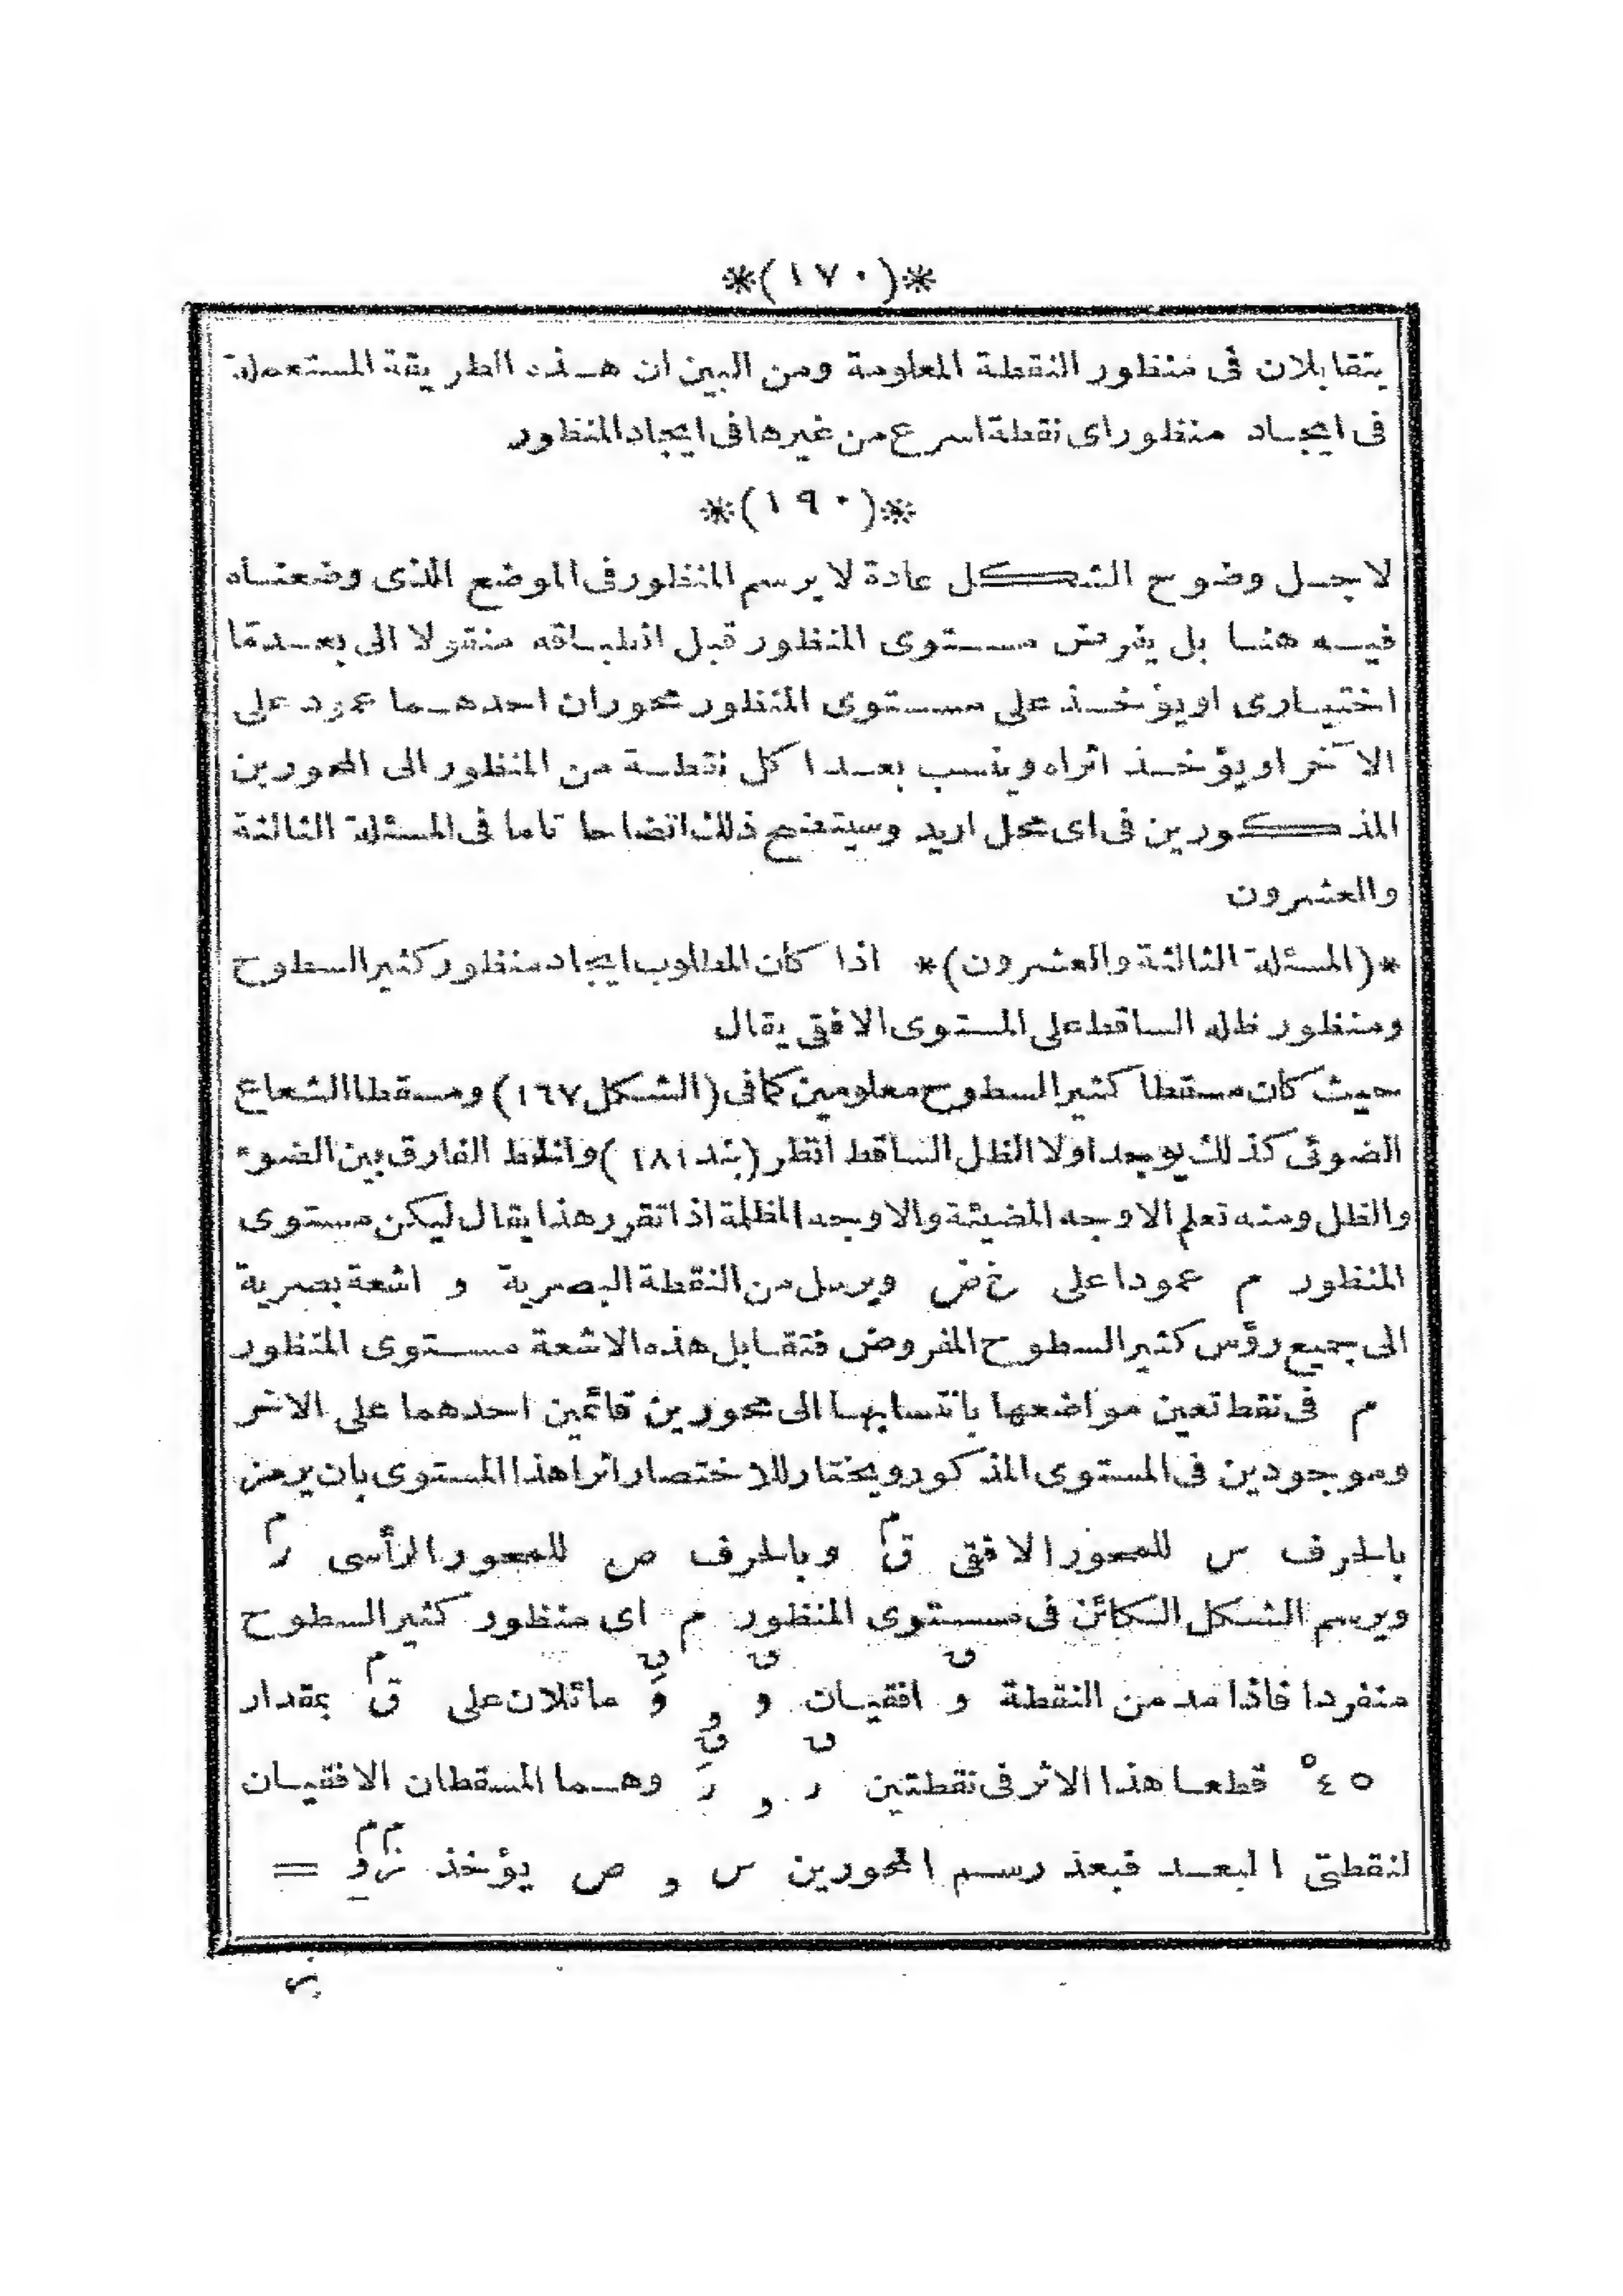 *(١٧٠)*
يتقابلان فى منظور النقطة المعلومة ومن البين ان هذه الطريقة المستعملة
فى ايجاد منظور اى نقطة اسرع من غيرها فى ايجاد المنظور
*(١٩٠)*
لاجل وضوح الشكل عادة لا يرسم المنظور فى الموضع الذى وضعناه
فيه هنا بل يفرض مستوى المنظور قبل انطباقه منقولا الى بعد ما
اختيارى او يؤخذ على مستوى المنظور محوران احدهما عمود على
الآخر او يؤخذ اثراه وينسب بعدا كل نقطة من المنظور الى المحورين
المذكورين فى اى محل اريد وسيتضح ذلك اتضاحا تاما فى المسئلة الثالثة
والعشرون
*(المسئلة الثالثة والعشرون)* اذا كان المطلوب ايجاد منظور كثير السطوح
ومنظور ظله الساقط على المستوى الافقى يقال
حيث كان مسقطا كثير السطوح معلومين كما فى (الشكل ١٦٧) ومسقطا الشعاع
الضوئى كذلك يوجد اولا الظل الساقط انظر (بند ١٨١) والخط الفارق بين الضوء
والظل ومنه تعلم الاوجه المضيئة والاوجه المظلمة اذا تقرر هذا يقال ليكن مستوى
المنظور م عمودا على خ ض ويرسل من النقطة البصرية و اشعة بصرية
الى جميع رؤس كثير السطوح المفروض فتقابل هذه الاشعة مستوى المنظور
م فى نقط تعين مواضعها بانتسابها الى محورين قائمين احدهما على الاخر
وموجودين فى المستوى المذكور ويختار للاختصار اثرا هذا المستوى بان يرمز
بالحرف س للمحور الافقى ق^م وبالحرف ص للمحور الرأسى ر^م
ويرسم الشكل الكائن فى مستوى المنظور م اى منظور كثير السطوح
منفردا فاذا مد من النقطة و افقيات و , و مائلان على ق^م بمقدار
٤٥° قطعا هذا الاثر فى نقطتين ر , ر وهما المسقطان الافقيان
لنقطتى البعد فبعد رسم المحورين س , ص يؤخذ =